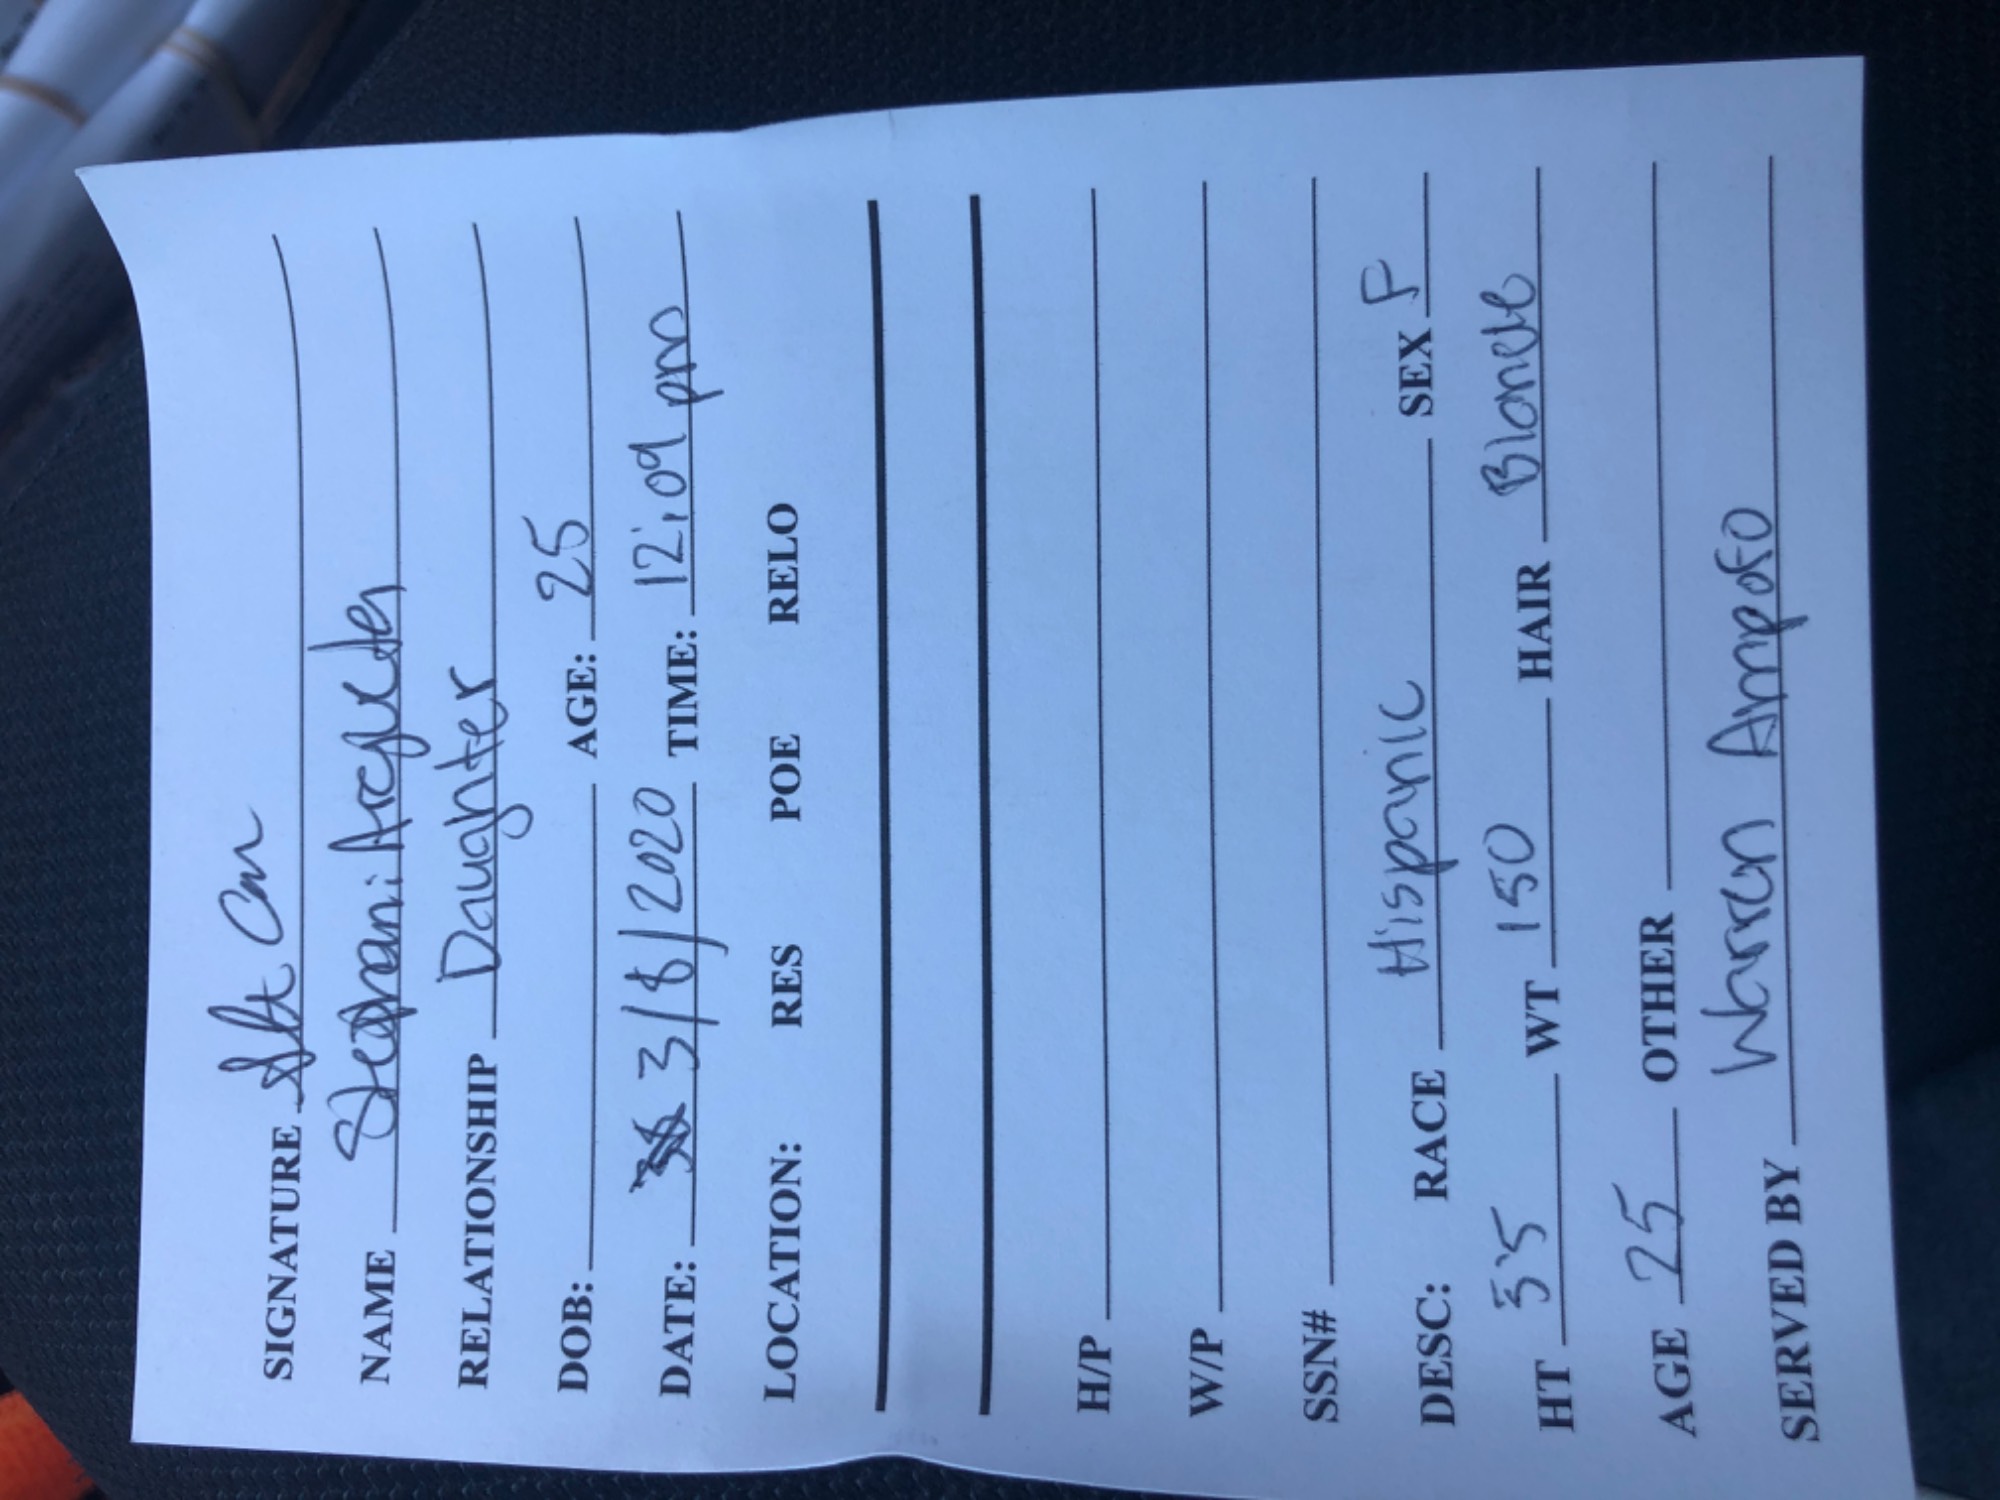 SIGNATURE
NAME Stephani Argueta
RELATIONSHIP Daughter
DOB: AGE: 25
DATE: 3/8/2020 TIME: 12:09 pm
LOCATION: RES POE RELO
H/P
W/P
SSN#
DESC: RACE Hispanic SEX F
HT 5'5 WT 150 HAIR Blonde
AGE 25 OTHER
SERVED BY Warren Ampofo